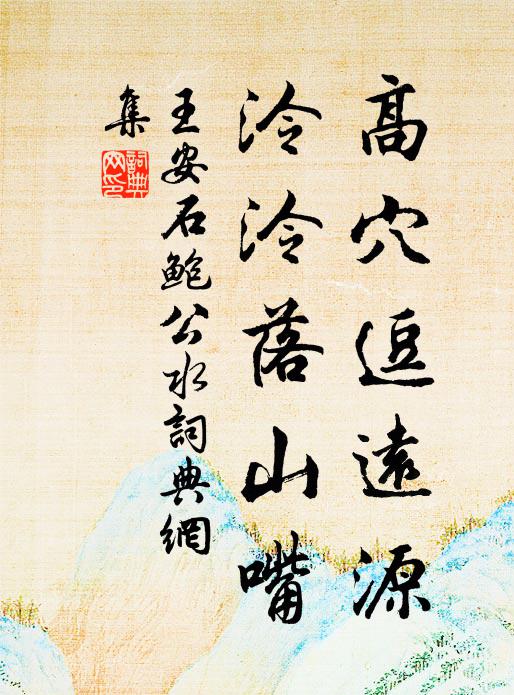 高穴逗遠源
泠泠落山嘴
王安石鮑公水詞典網
集
詞典
网印